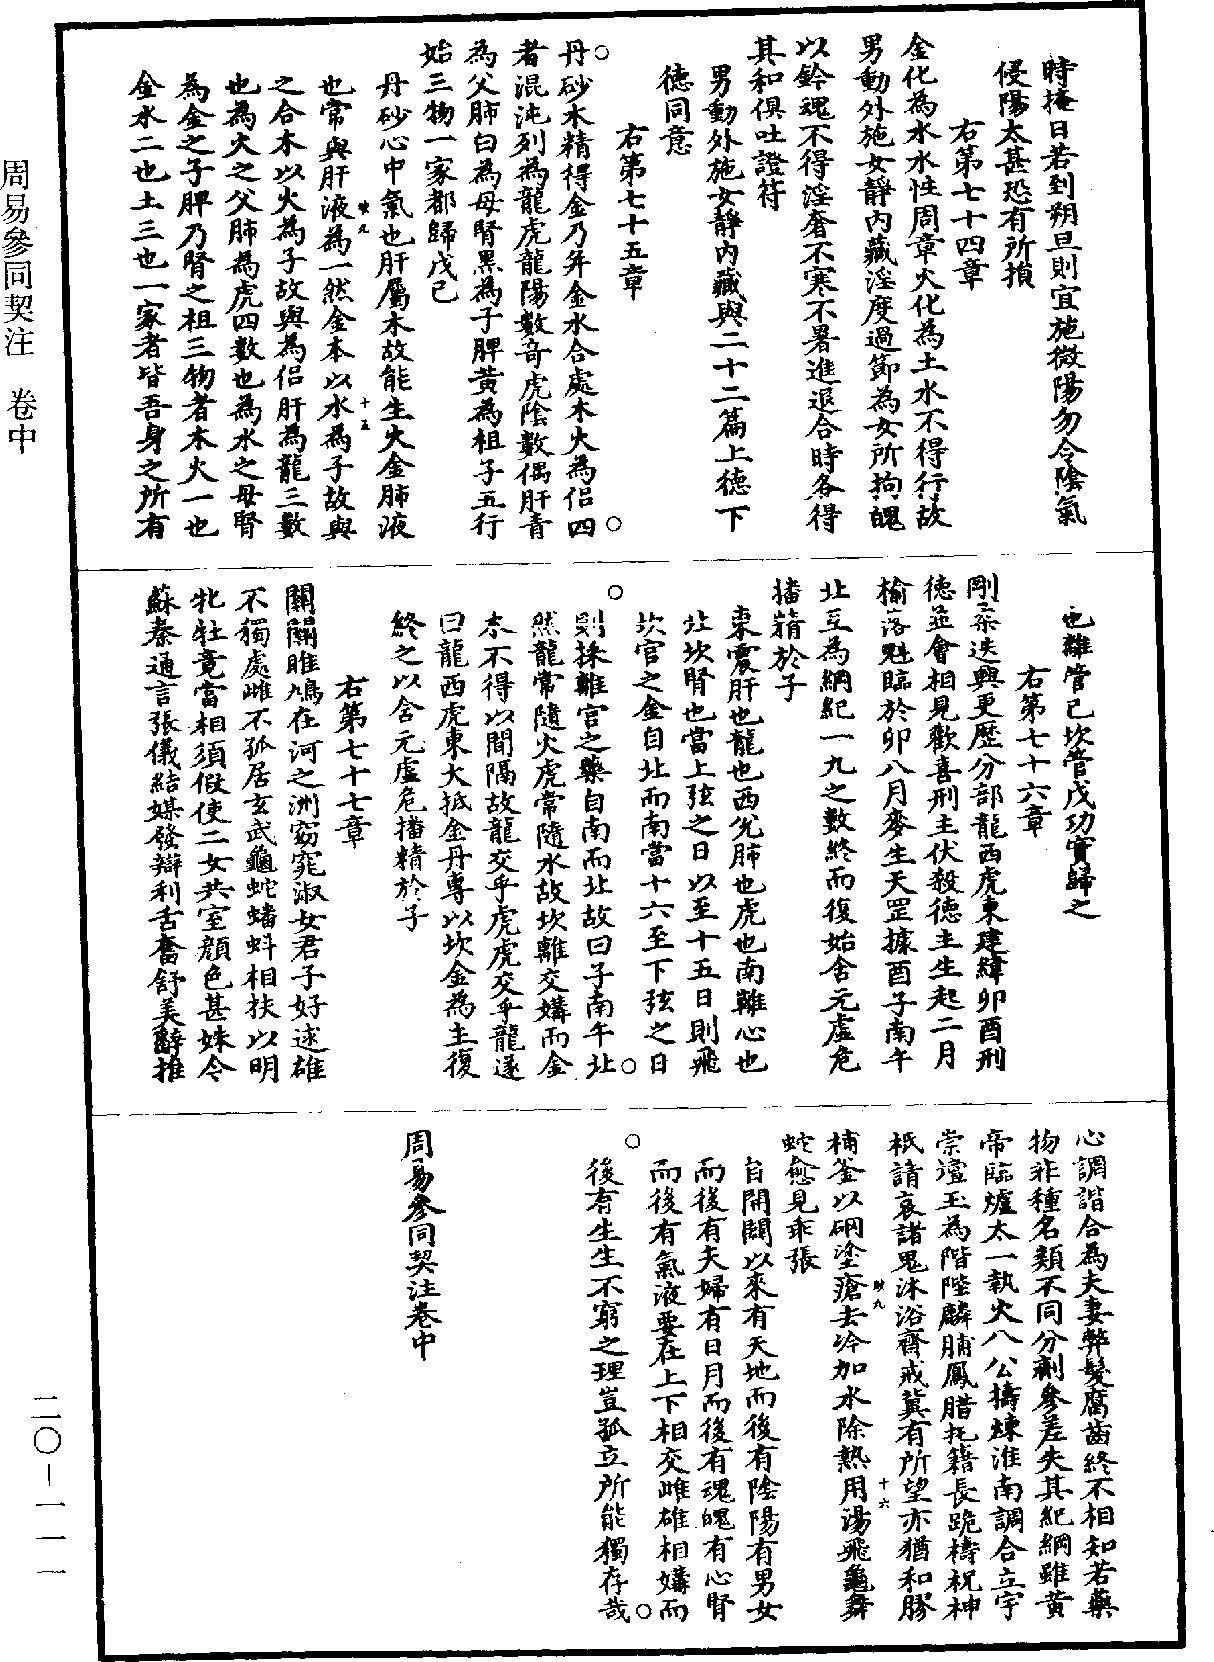 時掩日若到朔旦則宜施微陽勿令陰氣
侵陽太甚恐有所損
右第七十四章
金化為水水性周章火化為土水不得行故
男動外施女靜內藏淫度過節為女所拘魄
以鈐魂不得淫奢不寒不暑進退合時各得
其和俱吐證符
男動外施女靜內藏與二十二篇上德下
德同意
右第七十五章
丹砂木精得金乃并金水合處木火為侶四
者混沌列為龍虎龍陽數奇虎陰數偶肝青
為父肺白為母腎黑為子脾黃為祖子五行
始三物一家都歸戊己
丹砂心中氣也肝屬木故能生火金肺液
也常與肝液為一然金本以水為子故與
之合木以火為子故與為侶肝為龍三數
也為火之父肺為虎四數也為水之母腎
為金之子脾乃腎之祖三物者木火一也
金水二也土三也一家者皆吾身之所有
也離管己坎管戊功實歸之
右第七十六章
剛柔迭興更歷分部龍西虎東建緯卯酉刑
德並會相見歡喜刑主伏殺德主生起二月
榆落魁臨於卯八月麥生天罡據酉子南午
北互為綱紀一九之數終而復始含元虛危
播精於子
東震肝也龍也西兌肺也虎也南離心也
北坎腎也當上弦之日以至十五日則飛
坎宮之金自北而南當十六至下弦之日
則採離宮之藥自南而北故曰子南午北
然龍常隨火虎常隨水故坎離交媾而金
木不得以間隔故龍交乎虎虎交乎龍遂
曰龍西虎東大抵金丹專以坎金為主復
終之以含元虛危播精於子
右第七十七章
關關雎鳩在河之洲窈窕淑女君子好逑雄
不獨處雌不孤居玄武龜蛇蟠蚪相扶以明
牝牡竟當相須假使二女共室顏色甚姝令
蘇秦通言張儀結媒發辯利舌奮舒美辭推
心調諧合為夫妻弊髮腐齒終不相知若藥
物非種名類不同分劑參差失其紀綱雖黃
帝臨爐太一執火八公擣煉淮南調合立宇
崇壇玉為階陛麟脯鳳腊把籍長跪禱祝神
祇請哀諸鬼沐浴齋戒冀有所望亦猶和膠
補釜以硇塗瘡去冷加水除熱用湯飛龜舞
蛇愈見乖張
自開闢以來有天地而後有陰陽有男女
而後有夫婦有日月而後有魂魄有心腎
而後有氣液要在上下相交雌雄相媾而
後有生生不窮之理豈孤立所能獨存哉
周易參同契注卷中
周易參同契注 卷中
二〇-一一一
映九
十五
映九
十六